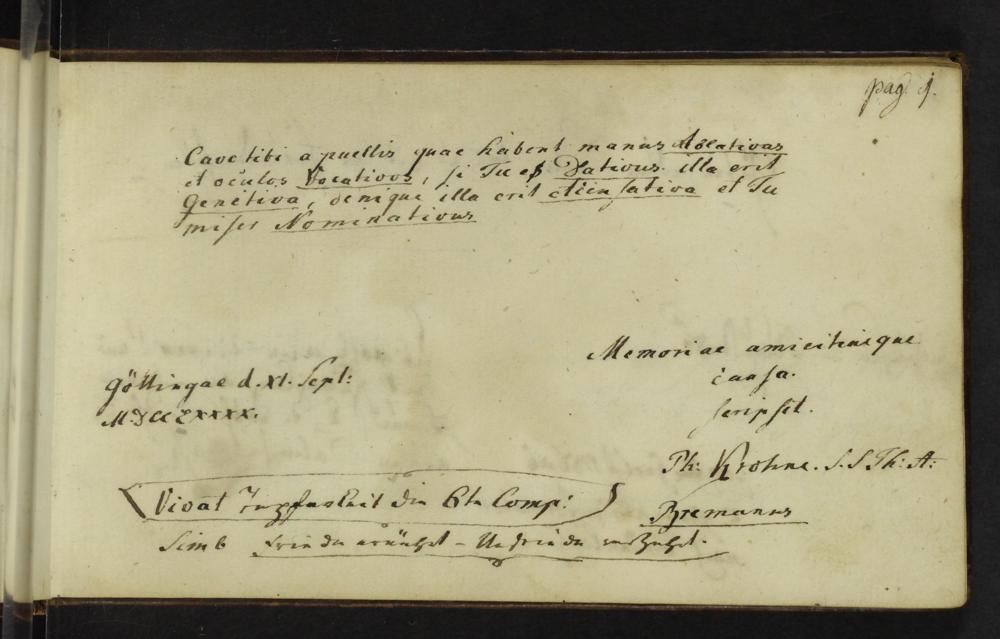 pag. 9.
Cave tibi a puellis quae habent manus Ablativas
et oculos Vocativos, si Tu es Dativus illa erit
Genetiva, denique illa erit accusativa et Tu
miser Nominativus
Memoriae amicitiaeque
causa.
scripsit.
Ph: Krohne. S. S Th: A:
Bremanus
Göttingae d. XI. Sept:
MDCCLXXXX.
Vivat die 6te Comp:
Simb Friede ernährt - Unfriede verzehrt.